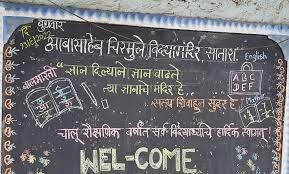 बुधवार
दि
आबासाहेब चिरमुले विद्यामंदिर सातारा.
English
बालभारती
"ज्ञान दिल्याने ज्ञान वाढते
त्या ज्ञानाचे मंदिर हे..
सत्य शिवाहून सुंदर हे"
ABC
DEF
चालू शैक्षणिक वर्षात सर्व विद्यार्थ्यांचे हार्दिक स्वागत
WEL-COME